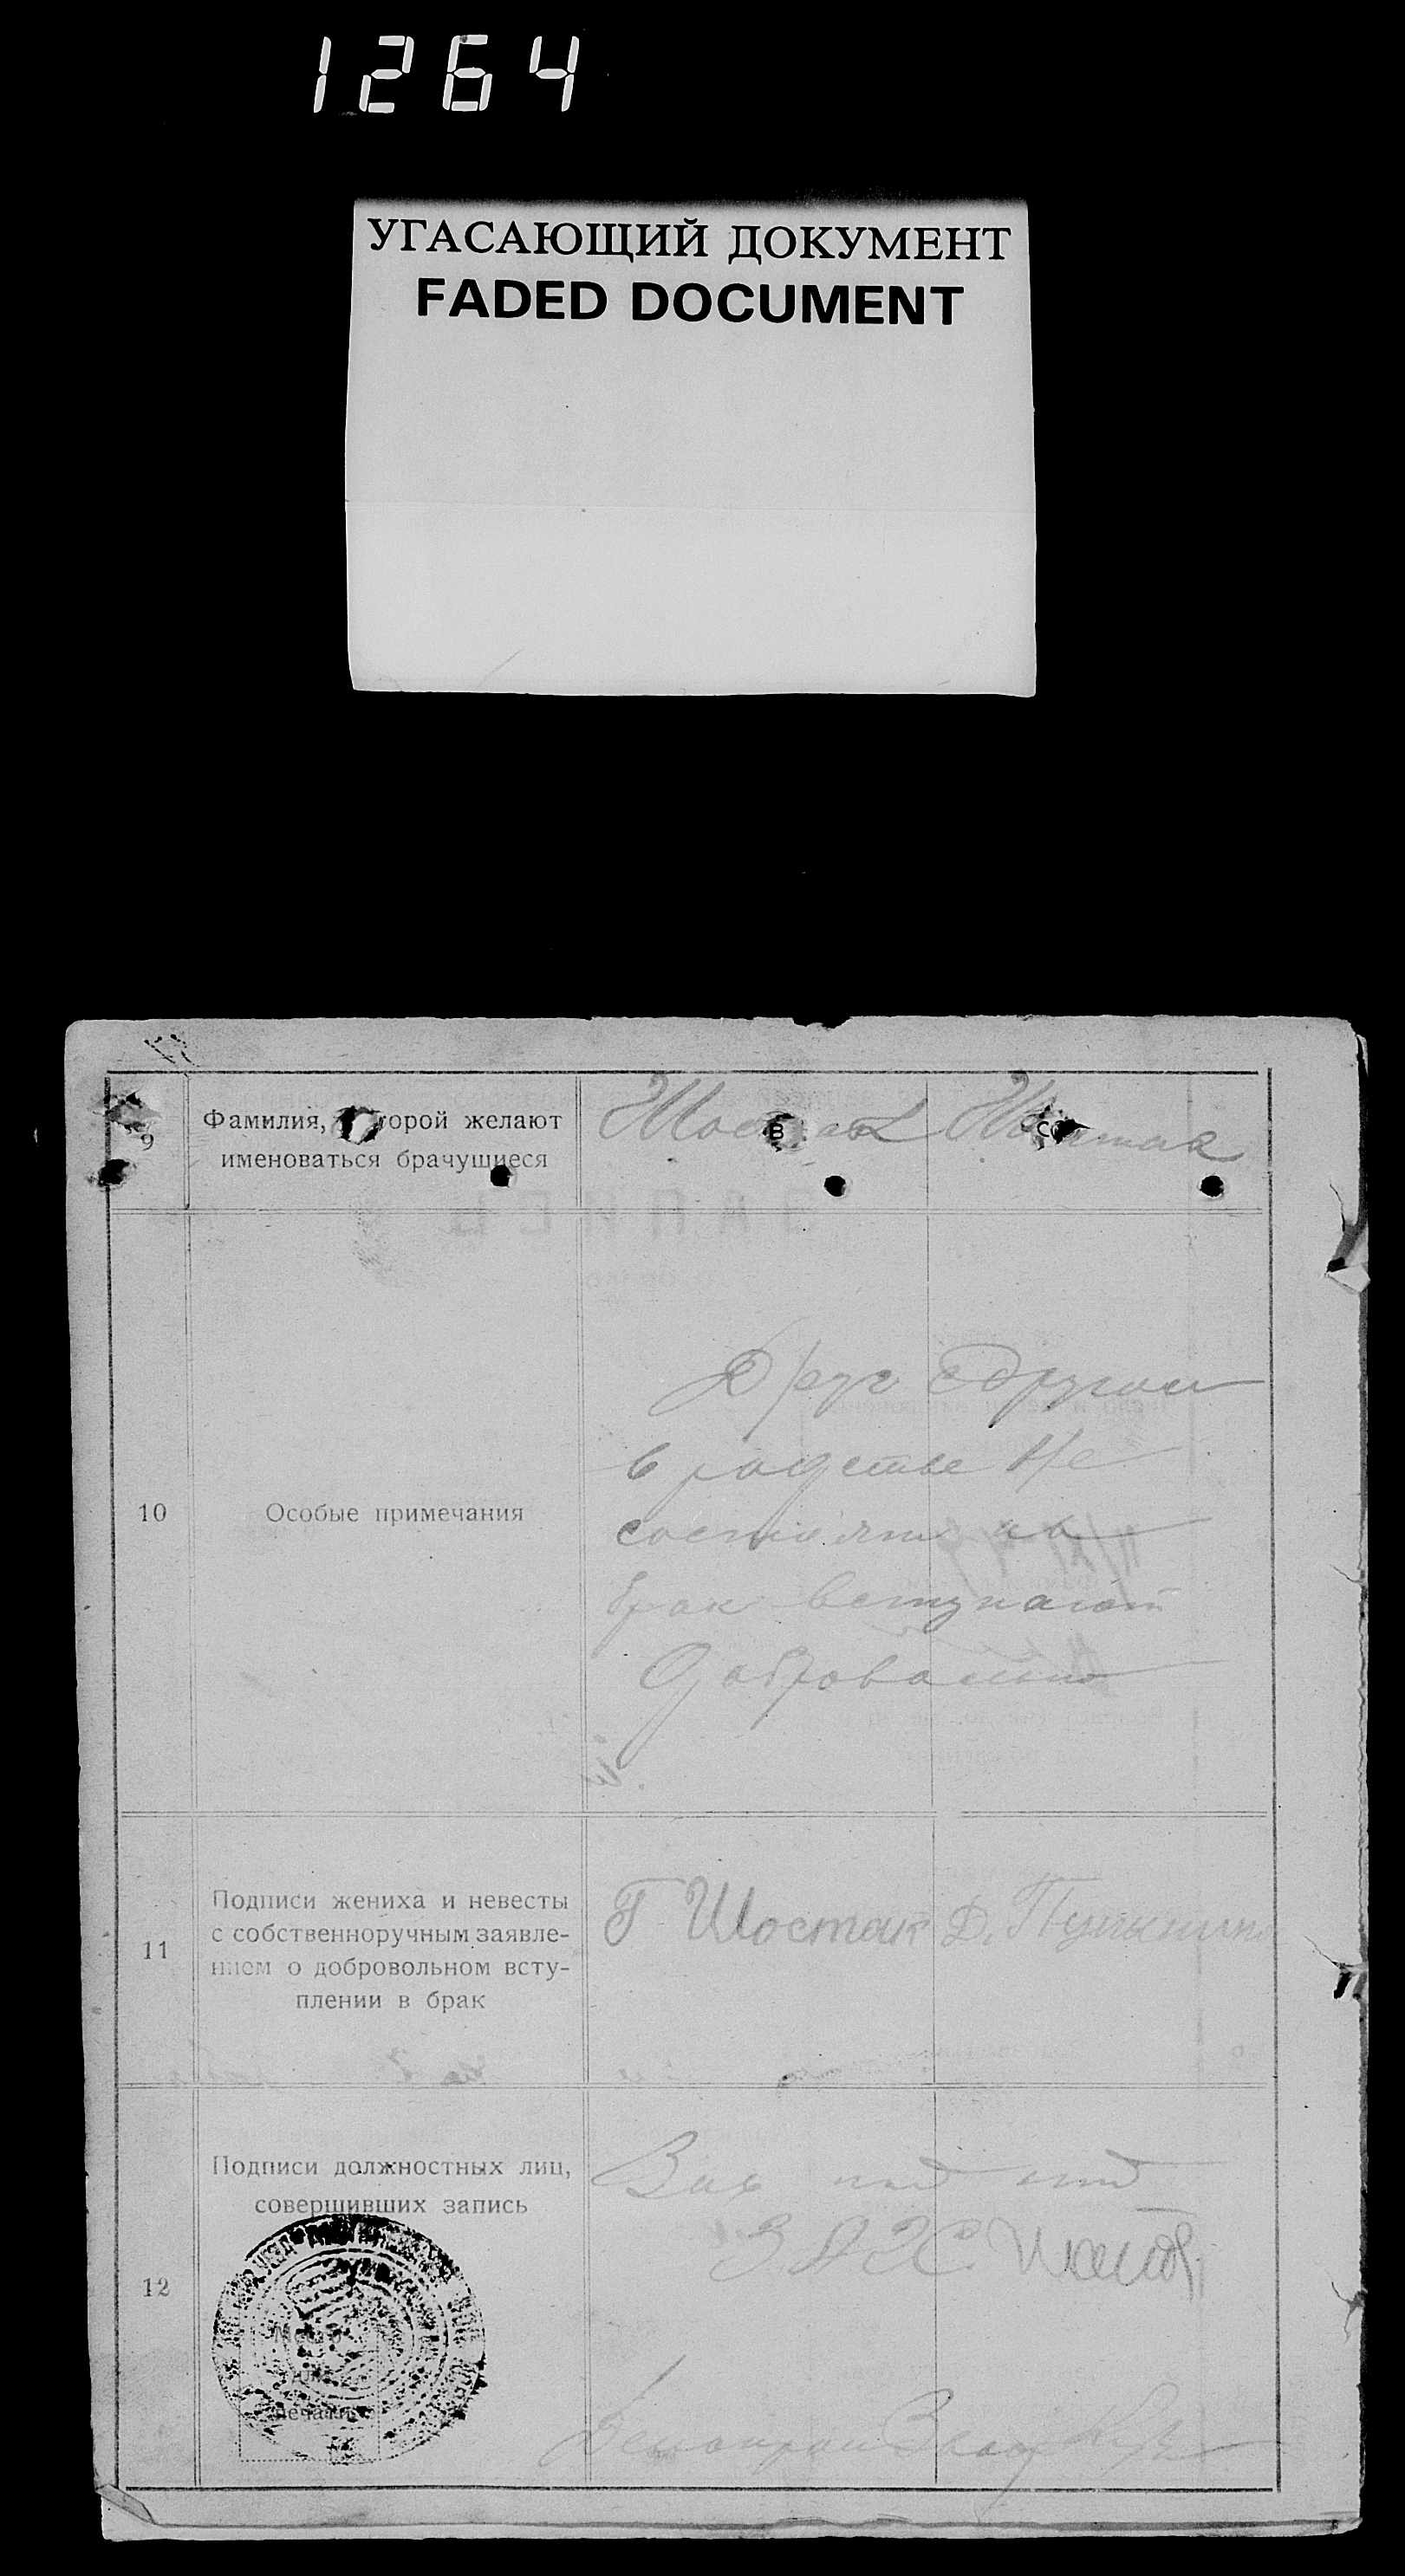 1264
УГАСАЮЩИЙ ДОКУМЕНТ
FADED DOCUMENT
9
Фамилия, которой желают
именоваться брачущиеся
Шостак Шостак
B
C
10
Особые примечания
Друг с другом
в родстве не
состоят
брак вступают
добровольно
11
Подписи жениха и невесты
с собственноручным заявле-
нием о добровольном всту-
плении в брак
Г Шостак
Д.
12
Подписи должностных лиц,
совершивших запись
Зав
ЗАГС
печати